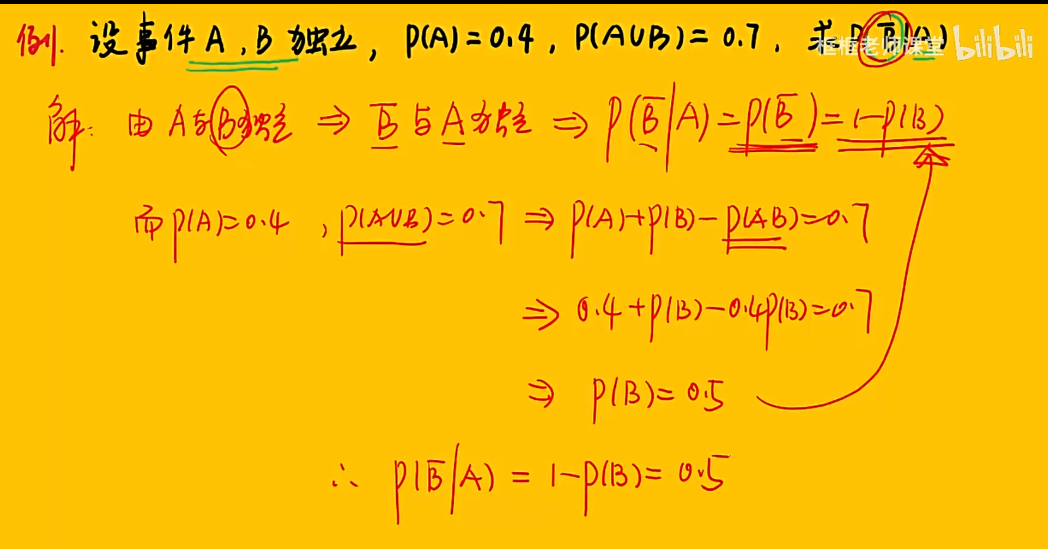 例. 设事件A,B独立, P(A)=0.4, P(A∪B)=0.7, 求P(B̅|A)
框框老师课堂 bilibili
解: 由A与B独立 ⇒ B̅与A独立 ⇒ P(B̅|A)=P(B̅)=1-P(B)
而P(A)=0.4, P(A∪B)=0.7 ⇒ P(A)+P(B)-P(AB)=0.7
⇒ 0.4+P(B)-0.4P(B)=0.7
⇒ P(B)=0.5
∴ P(B̅|A)=1-P(B)=0.5